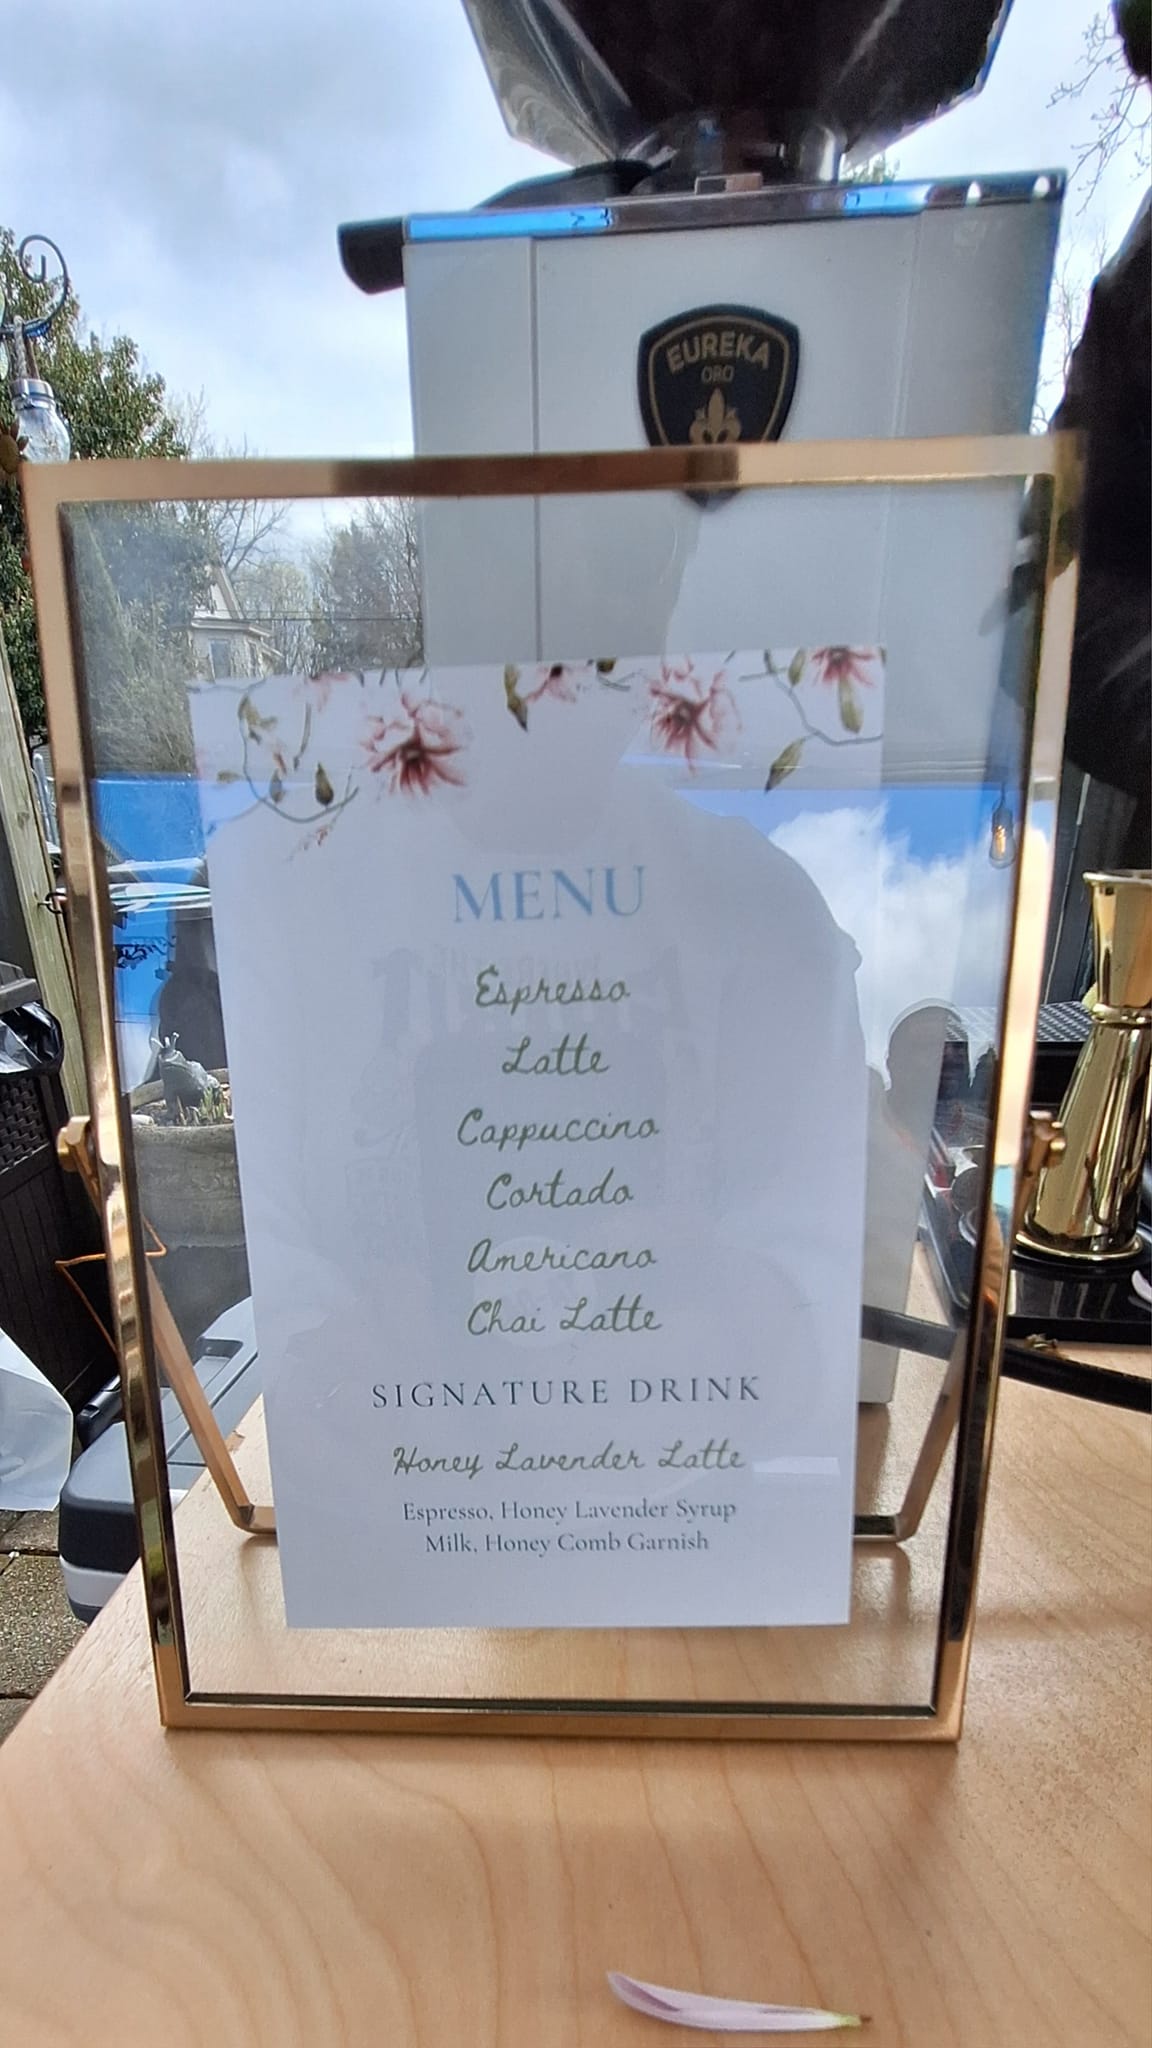 EUREKA
ORO
MENU
Espresso
Latte
Cappuccino
Cortado
Americano
Chai Latte
SIGNATURE DRINK
Honey Lavender Latte
Espresso, Honey Lavender Syrup
Milk, Honey Comb Garnish